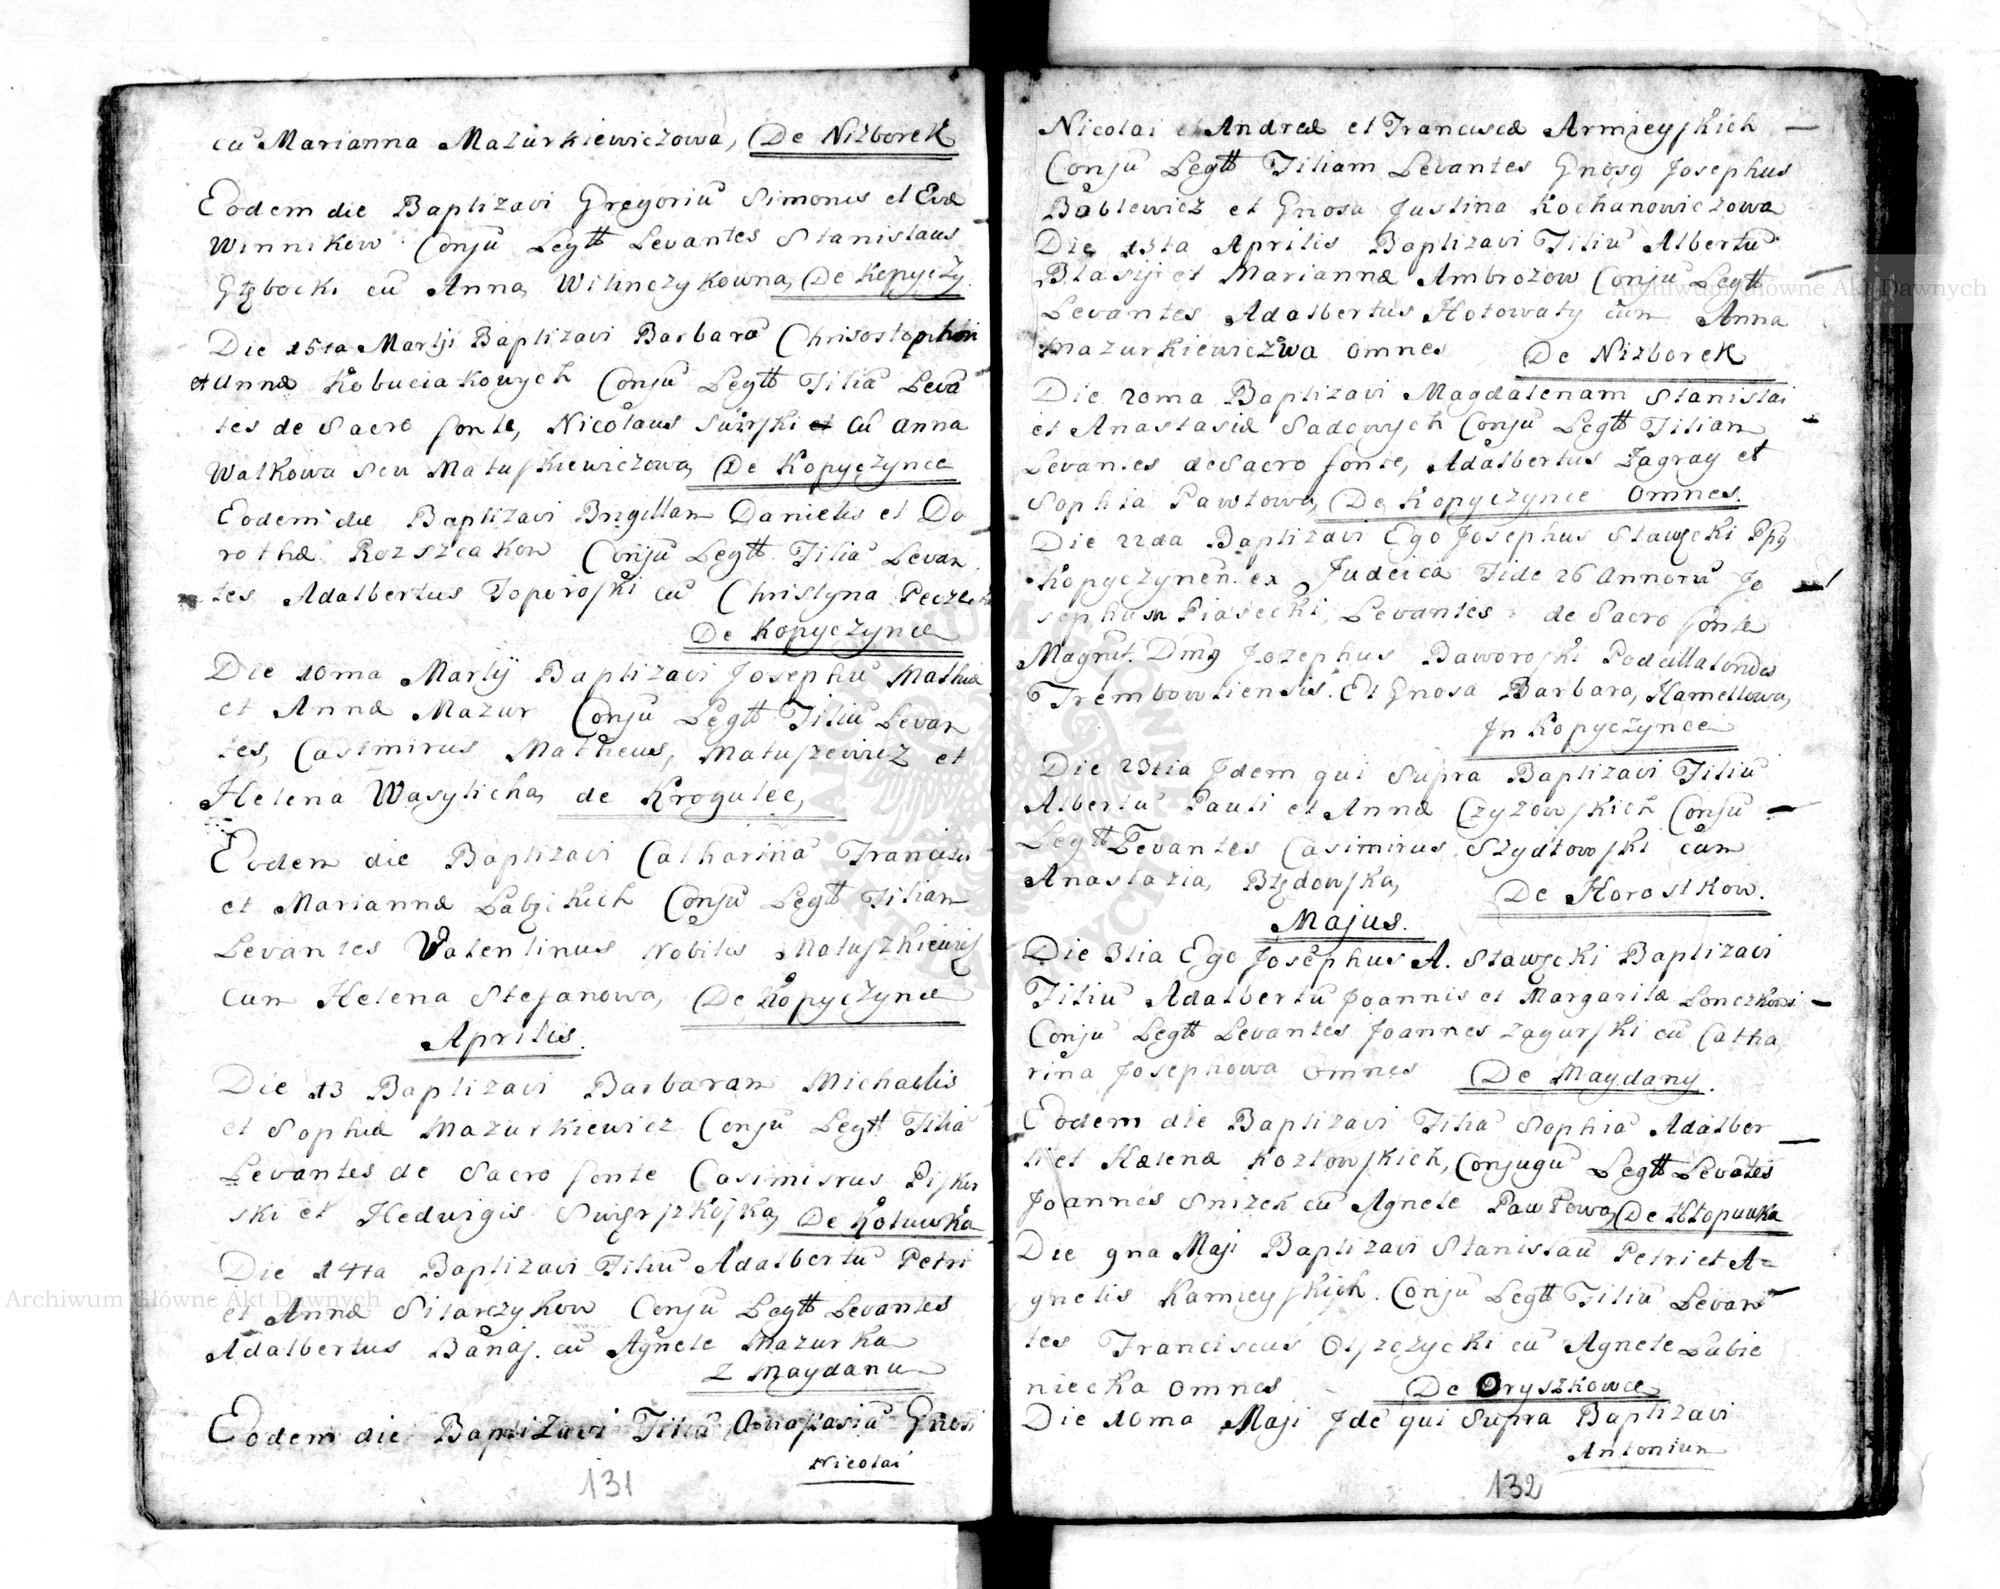 cū Marianna Mazurkiewiczowa, De Nizborek
Eodem die Baptizavi Gregoriū Simonis et Evæ
Winnikow Conjū Legtt Levantes Stanislaus
Głębocki cū Anna Wilinczykowna, De Kopyczy.
Die 15ta Martij Baptizavi Barbarā Chrisostophori
et Annæ Kobuciakowych Conjū Legtt Filiā Levā
tes de Sacro fonte, Nicolaus et Cū Anna
Walkowa seu Matuszkiewiczowa, De Kopyczynce
Eodem die Baptizavi Brigittam Danielis et Do
rothæ Rozszcakow Conjū Legtt Filiā Levan
tes Adalbertus Toporoſki cū Christyna
De Kopyczynce
Die 10ma Martij Baptizavi Josephū Mathiæ
et Annæ Mazur Conjū Legtt Filiū Levan
tes, Casimirus Matheus, Matuſzewicz et
Helena Wasylicha, de Krogulec,
Eodem die Baptizavi Catharinā Francisci
et Mariannæ Conjū Legtt Filiam
Levantes Valentinus Nobilis Matuszkiewiſ
cum Helena Stefanowa, De Kopyczynce
Aprilis.
Die 13 Baptizavi Barbaram Michaelis
et Sophiæ Mazurkiewicz Conju Legtt Filiā
Levantes de Sacro fonte Casimisrus Piſkor
ski et Hedwigis De Kotuwka
Die 14ta Baptizavi Filiū Adalbertū Petri
et Annæ Sitarczykow Conjū Legtt Levantes
Adalbertus Banaſ. cū Agnete Mazurka
Z Maydanu
Eodem die Baptizavi Filiā Anaſtasiā Gnosi
Nicolai
131
Nicolai et Andreæ et Franciscæ Armieyſkich
Conjū Legtt Filiam Levantes Gnosg Josephus
Bablewicz et Gnosa Justina Kochanowiczowa
Die 15ta Aprilis Baptizavi Filiū Albertū
Blasij et Mariannæ Ambrozow Conjū Legtt
Levantes Adalbertus Hotowaty cum Anna
Mazurkiewiczwa omnes De Nizborek
Die 20ma Baptizavi Magdalenam Stanislai
et Anastasiæ Sadowych Conjū Legtt Filiam
Levantes de Sacro fonte, Adalbertus Zagray et
Sophia Pawłowa, De Kopyczynce Omnes.
Die 22da Baptizavi Ego Josephus Sławęcki Ppg
Kopyczynēn. ex Judeica Fide 26 Annorū Jo
sephum Piasecki, Levantes de Sacro fonte
Magnif. Dmg Jozephus Baworoſki Podcillatondes
Trembowliensis. Et Gnosa Barbara, Hamellowa,
Jn Kopyczynce
Die 23tia Jdem qui Supra Baptizavi Filiū
Albertū Pauli et Annæ Czyzowſkich Conjū
Legtt Levantes Casimirus Szydłowſki cum
Anastazia, Błędowſka, De Horostkow.
Majus.
Die 3tia Ego Josephus A. Sławęcki Baptizavi
Filiū Adalbertū Joannis et Margaritæ
Conjū Legtt Levantes Joannes Zagurſki cū Catha
rina Josephowa omnes De Maydany.
Eodem die Baptizavi Filiā Sophiā Adalber
ti et Hælenæ Kozłowſkich, Conjugū Legtt Levātes
Joannes Snizek cū Agnete Pawłowa, De Kłopuwka
Die 9na Maji Baptizavi Stanislaū Petri et A=
gnetis Kamieyſkich. Conjū Legtt Filiū Levan
tes Franciscus Otſzezycki cū Agnete Łubie
niecka omnes De Oryszkowce
Die 10ma Maji Jdē qui Supra Baptizavi
Antonium
132
Archiwum Główne Akt Dawnych
Archiwum Główne Akt Dawnych